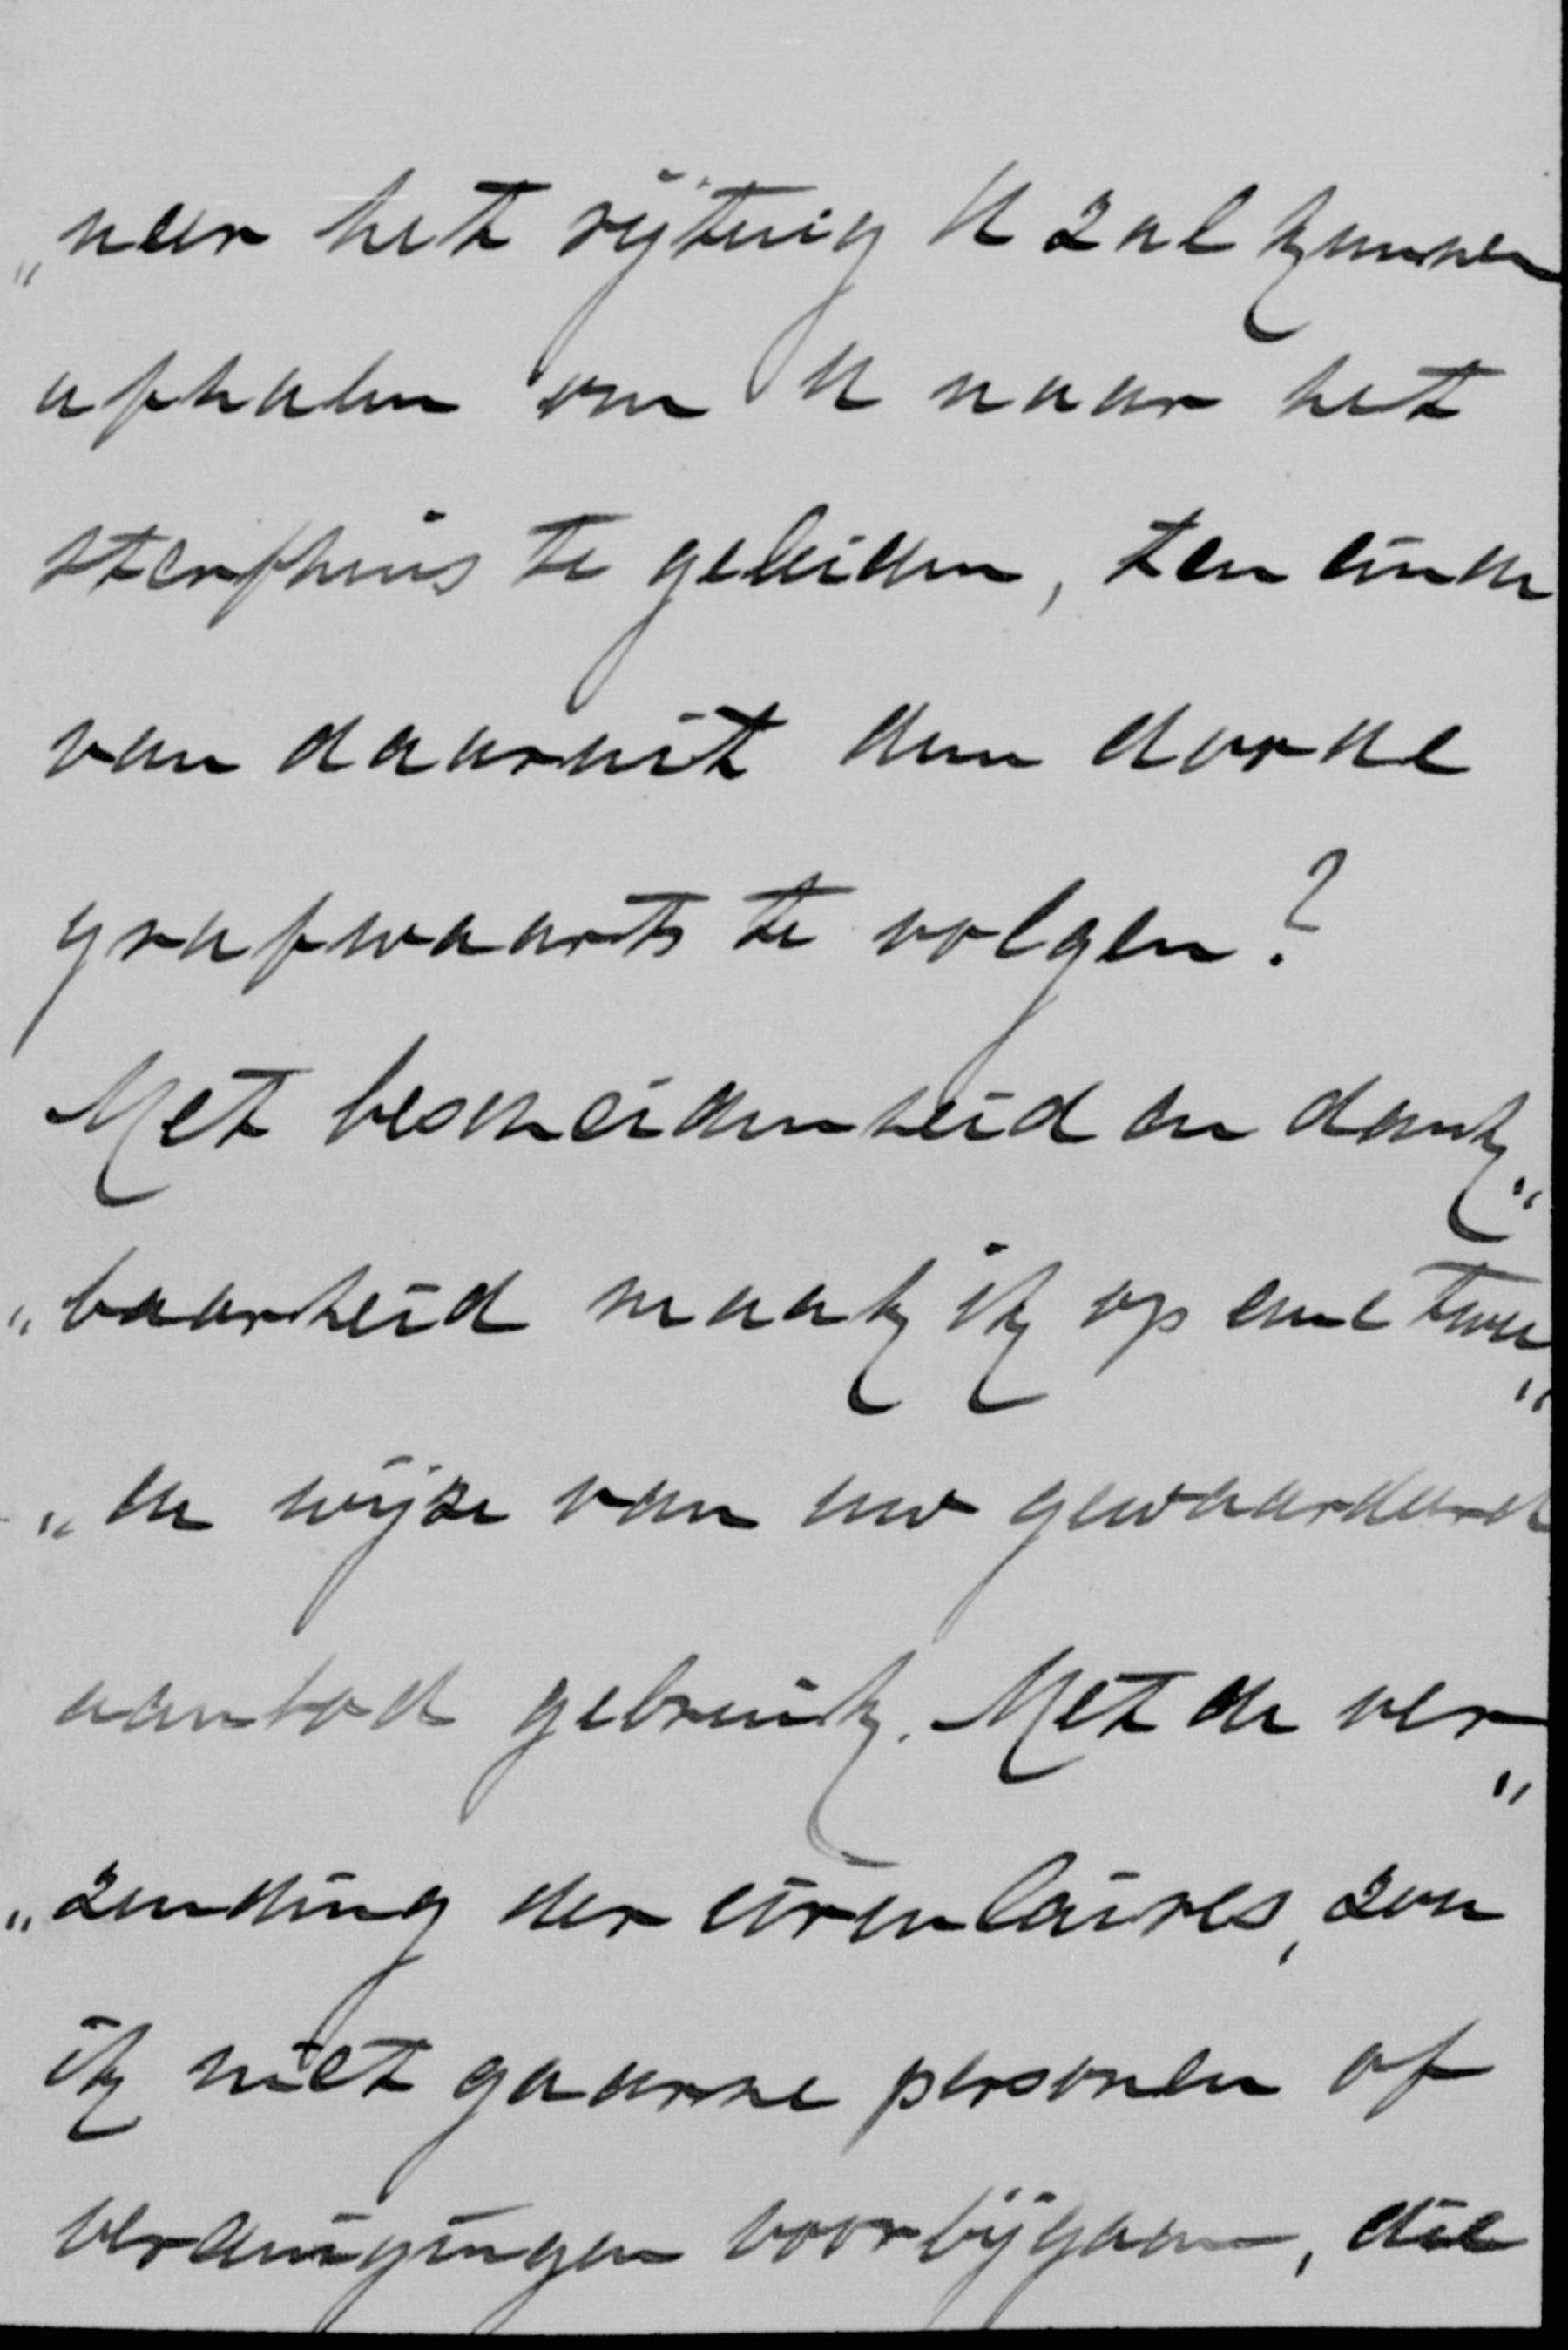 „neer het rijtuig U zal kunnen
afhalen om U naar het
sterfhuis te geleiden, ten einde
van daaruit den doode
grafwaarts te volgen?
Met bescheidenheid en dank„
„baarheid maak ik op eene twee„
„de wijze van uw gewaardeerd
aanbod gebruik. Met de ver„
„zending der circulaires, zou
ik niet gaarne personen of
vereenigingen voorbijgaan, die